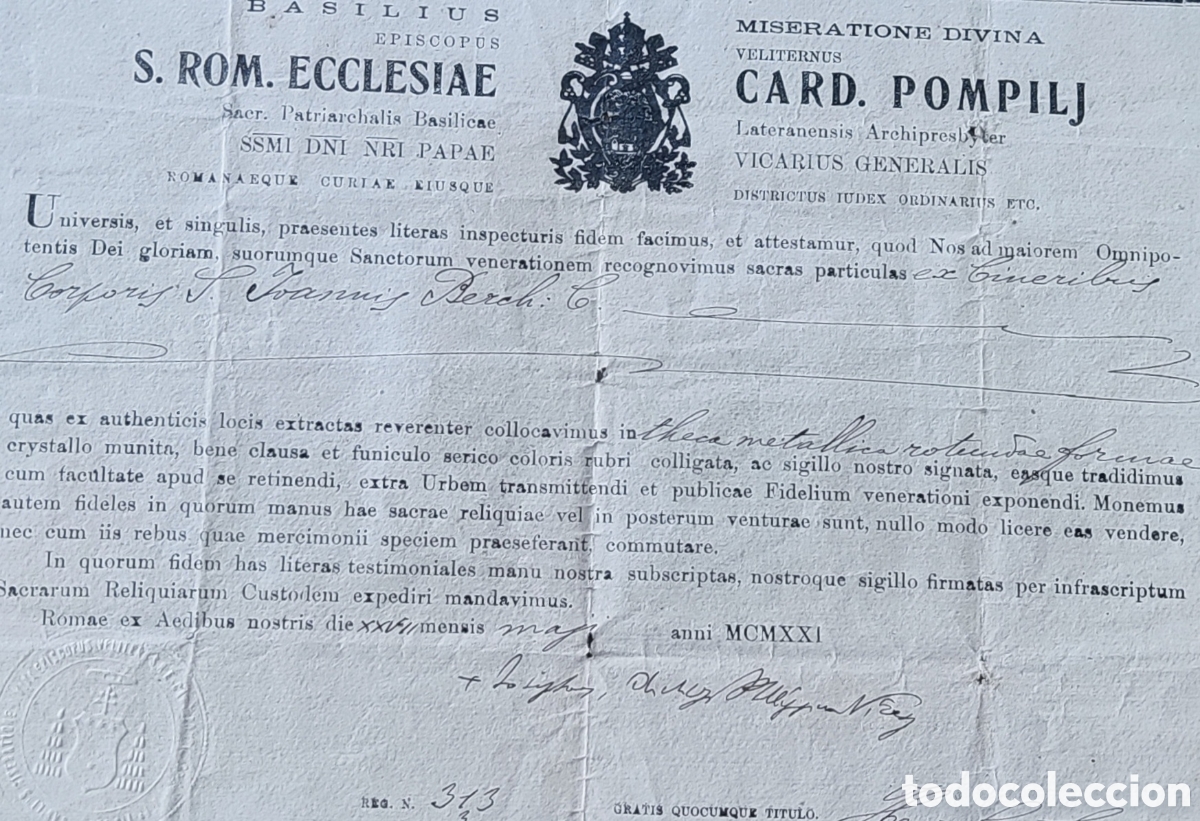 BASILIUS
EPISCOPUS
S. ROM. ECCLESIAE
Sacr. Patriarchalis Basilicae
SSMI DNI NRI PAPAE
ROMANAEQUE CURIAE EIUSQUE
MISERATIONE DIVINA
VELITERNUS
CARD. POMPILJ
Lateranensis Archipresbyter
VICARIUS GENERALIS
DISTRICTUS IUDEX ORDINARIUS ETC.
Universis, et singulis, praesentes literas inspecturis fidem facimus, et attestamur, quod Nos ad maiorem Omnipo-
tentis Dei gloriam, suorumque Sanctorum venerationem recognovimus sacras particulas ex Cineribus
Corporis S. Joannis Berch: C.
quas ex authenticis locis extractas reverenter collocavimus in theca metallica rotundae formae
crystallo munita, bene clausa et funiculo serico coloris rubri colligata, ac sigillo nostro signata, easque tradidimus
cum facultate apud se retinendi, extra Urbem transmittendi et publicae Fidelium venerationi exponendi. Monemus
autem fideles in quorum manus hae sacrae reliquiae vel in posterum venturae sunt, nullo modo licere eas vendere,
nec cum iis rebus quae mercimonii speciem praeseferant, commutare.
In quorum fidem has literas testimoniales manu nostra subscriptas, nostroque sigillo firmatas per infrascriptum
Sacrarum Reliquiarum Custodem expediri mandavimus.
Romae ex Aedibus nostris die XXVII mensis maji anni MCMXXI
REG. N. 313
GRATIS QUOCUMQUE TITULO.
todocoleccion